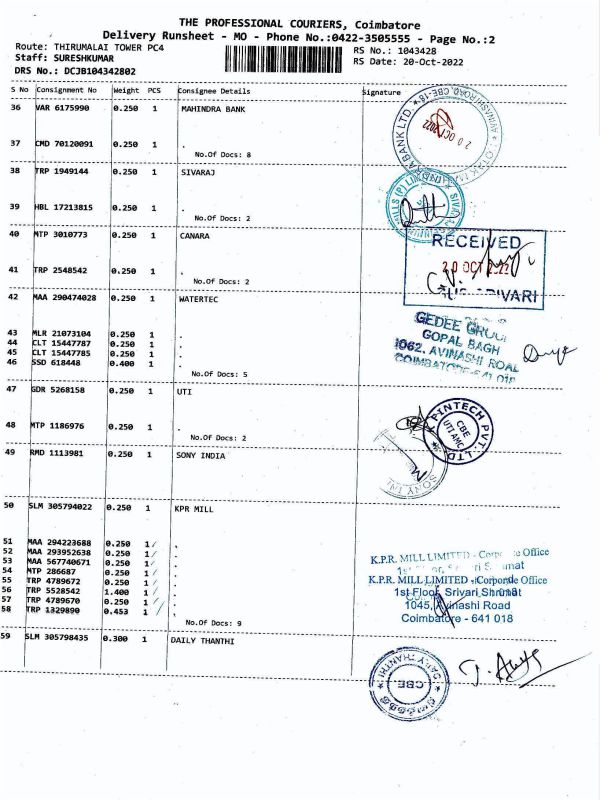 THE PROFESSIONAL COURIERS, Coimbatore
Delivery Runsheet - MO - Phone No.:0422-3505555 - Page No.:2
Route: THIRUMALAI TOWER PC4
RS No.: 1043428
Staff: SURESHKUMAR
RS Date: 20-Oct-2022
DRS No.: DCJB104342802
S No Consignment No Weight PCS Consignee Details Signature
36 VAR 6175990 0.250 1 MAHINDRA BANK
37 CMD 70120091 0.250 1 .
No.Of Docs: 8
38 TRP 1949144 0.250 1 SIVARAJ
39 HBL 17213815 0.250 1 .
No.Of Docs: 2
40 MTP 3010773 0.250 1 CANARA
RECEIVED
20 OCT 2022
41 TRP 2548542 0.250 1 .
No.Of Docs: 2
42 MAA 290474028 0.250 1 WATERTEC
43 MLR 21073104 0.250 1 .
44 CLT 15447787 0.250 1 .
45 CLT 15447785 0.250 1 .
46 SSD 618448 0.400 1 .
No.Of Docs: 5
GEDEE
GOPAL BAGH
1062, AVINASHI ROAD
47 GDR 5268158 0.250 1 UTI
48 MTP 1186976 0.250 1 .
No.Of Docs: 2
PINTECH PVT. LTD
CBE
UTI AMC
49 RMD 1113981 0.250 1 SONY INDIA
50 SLM 305794022 0.250 1 KPR MILL
51 MAA 294223688 0.250 1 .
52 MAA 293952638 0.250 1 .
53 MAA 567740671 0.250 1 .
54 MTP 286687 0.250 1 .
55 TRP 4789672 0.250 1 .
56 TRP 5528542 1.400 1 .
57 TRP 4789670 0.250 1 .
58 TRP 1329890 0.453 1 .
No.Of Docs: 9
K.P.R. MILL LIMITED - Corporate Office
K.P.R. MILL LIMITED - Corporate Office
1st Floor, Srivari Shrimat
1045, Avinashi Road
Coimbatore - 641 018
59 SLM 305798435 0.300 1 DAILY THANTHI
DAILY THANTHI
CBE